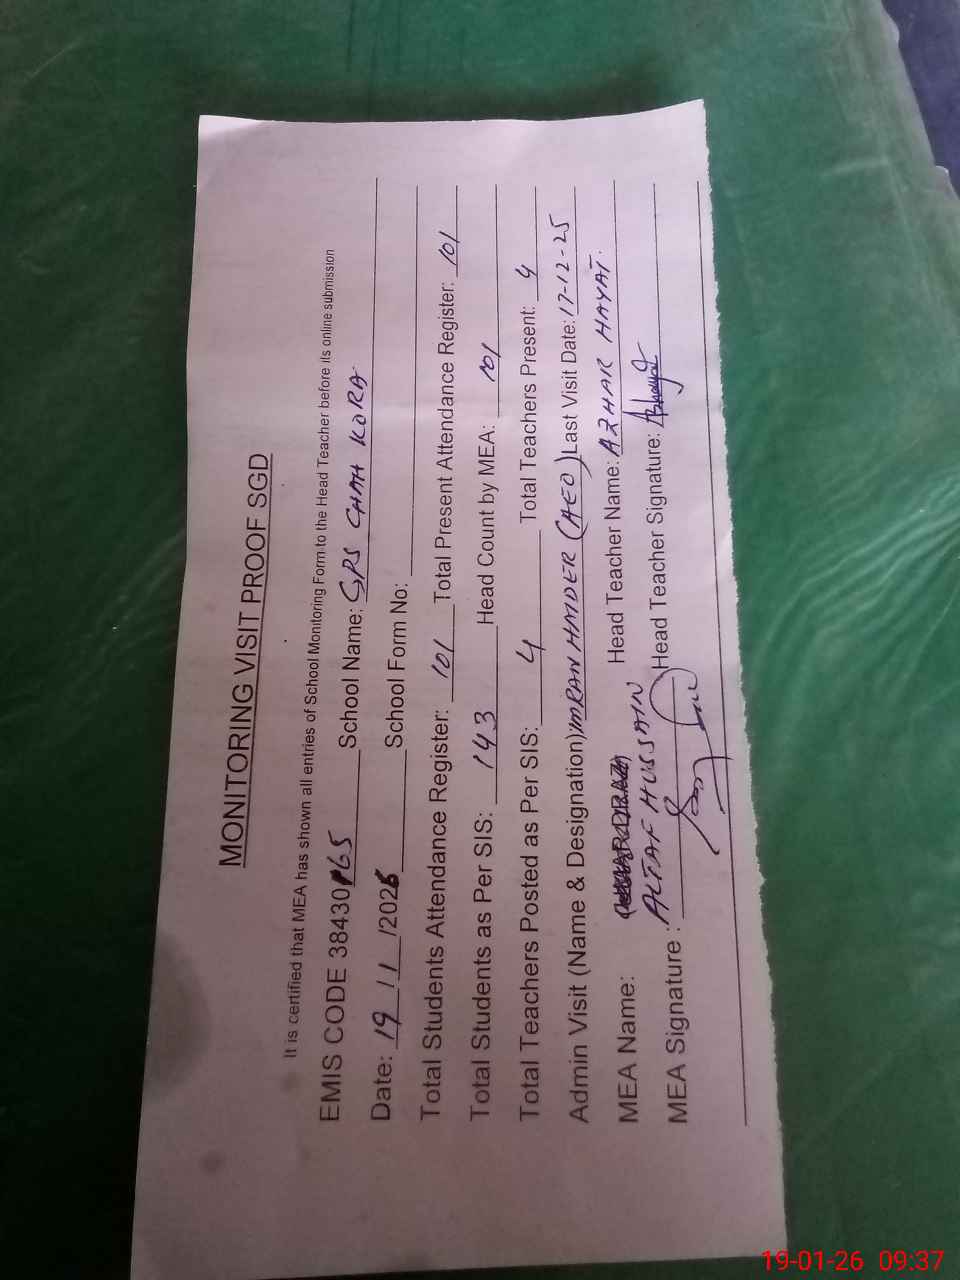 MONITORING VISIT PROOF SGD
It is certified that MEA has shown all entries of School Monitoring Form to the Head Teacher before its online submission
EMIS CODE 38430165 School Name: GPS CHAH KORA
Date: 19/1/2026 School Form No:
Total Students Attendance Register: 101 Total Present Attendance Register: 101
Total Students as Per SIS: 143 Head Count by MEA: 101
Total Teachers Posted as Per SIS: 4 Total Teachers Present: 4
Admin Visit (Name & Designation) IMRAN HAIDER (AEO) Last Visit Date: 17-12-25
MEA Name: ALTAF HUSSAIN Head Teacher Name: AZHAR HAYAT.
MEA Signature: Head Teacher Signature:
19-01-26 09:37